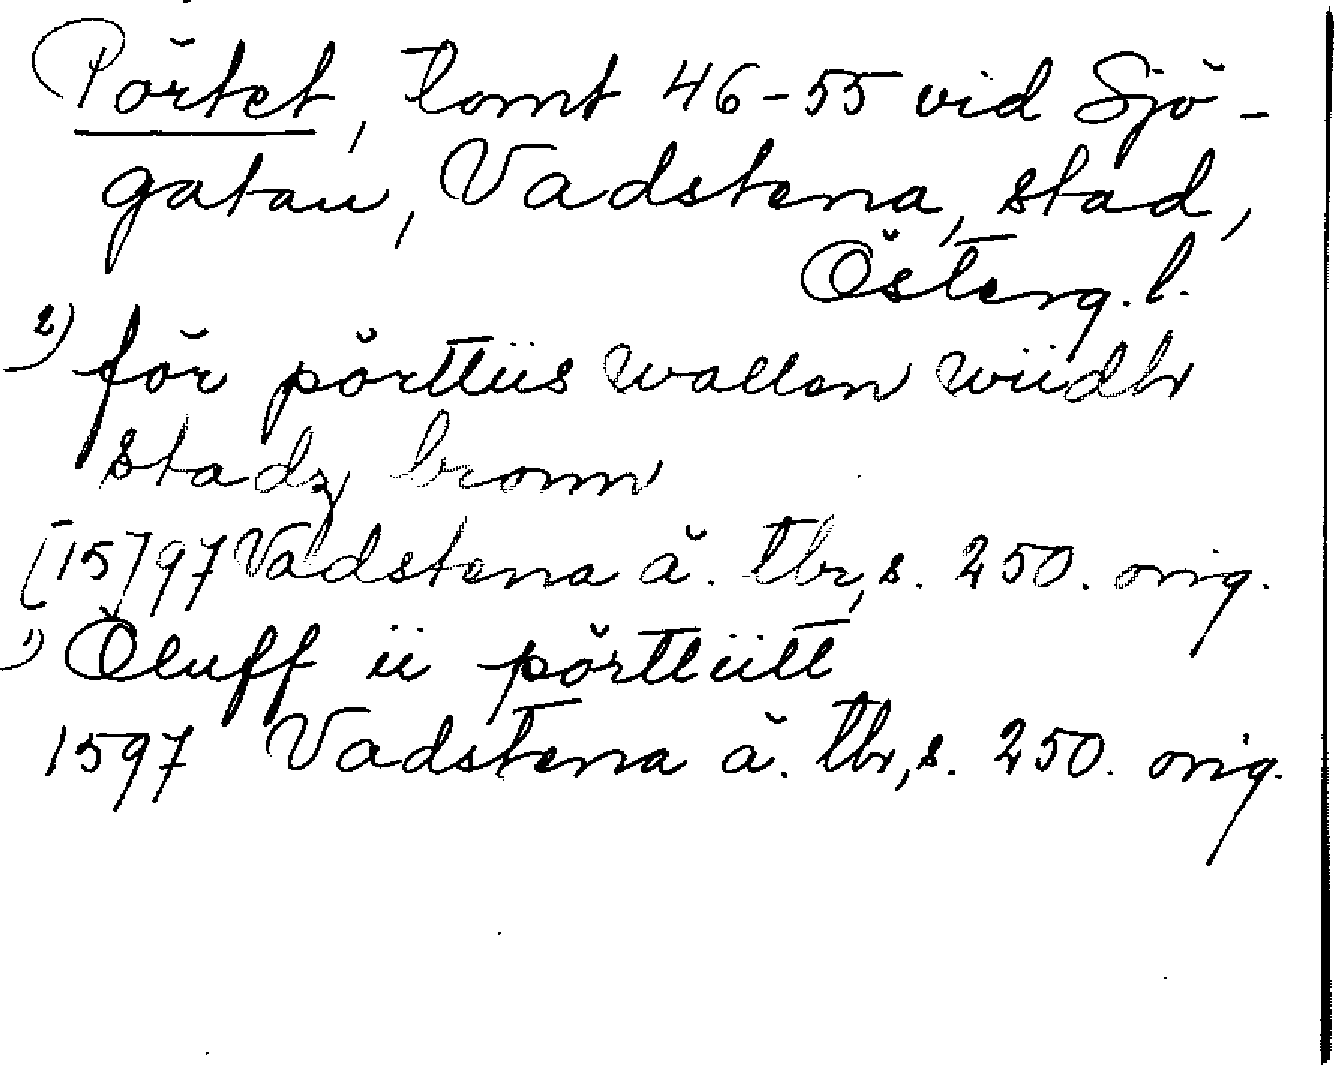 Pörtet, tomt 46-55 vid Sjö-
gatan, Vadstena, stad,
Österg. l.
2) för pörttiis wallen wiidh
stadz bronn
[15]97 Vadstena ä. tbr, s. 250. orig.
1) Öluff ii pörttiitt
1597 Vadstena ä. tbr, s. 250. orig.